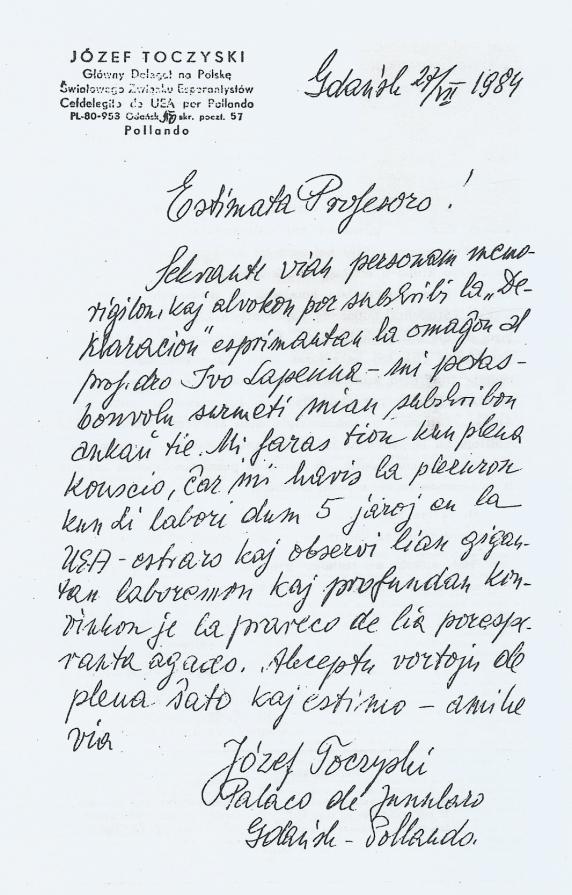 JÓZEF TOCZYSKI
Główny Delegat na Polskę
Światowego Związku Esperantystów
Ĉefdelegito de UEA por Pollando
PL-80-953 Gdańsk 50 skr. poczt. 57
Pollando
Gdańsk 27/VII 1984
Estimata Profesoro!
Sekvante vian personan memo-
rigilon, kaj alvokon por subskribi la „De-
klaracion" esprimantan la omaĝon al
prof. dro Ivo Lapenna - mi petas -
bonvolu surmeti mian subskribon
ankaŭ tie. Mi faras tion kun plena
konscio, ĉar mi havis la plezuron
kun li labori dum 5 jaroj en la
UEA - estraro kaj observi lian gigan-
tan laboremon kaj profundan kon-
vinkon je la praveco de lia poresp-
ranta agado. Akceptu vortojn de
plena ŝato kaj estimo - amike
via
Józef Toczyski
Palaco de Junularo
Gdańsk - Pollando.